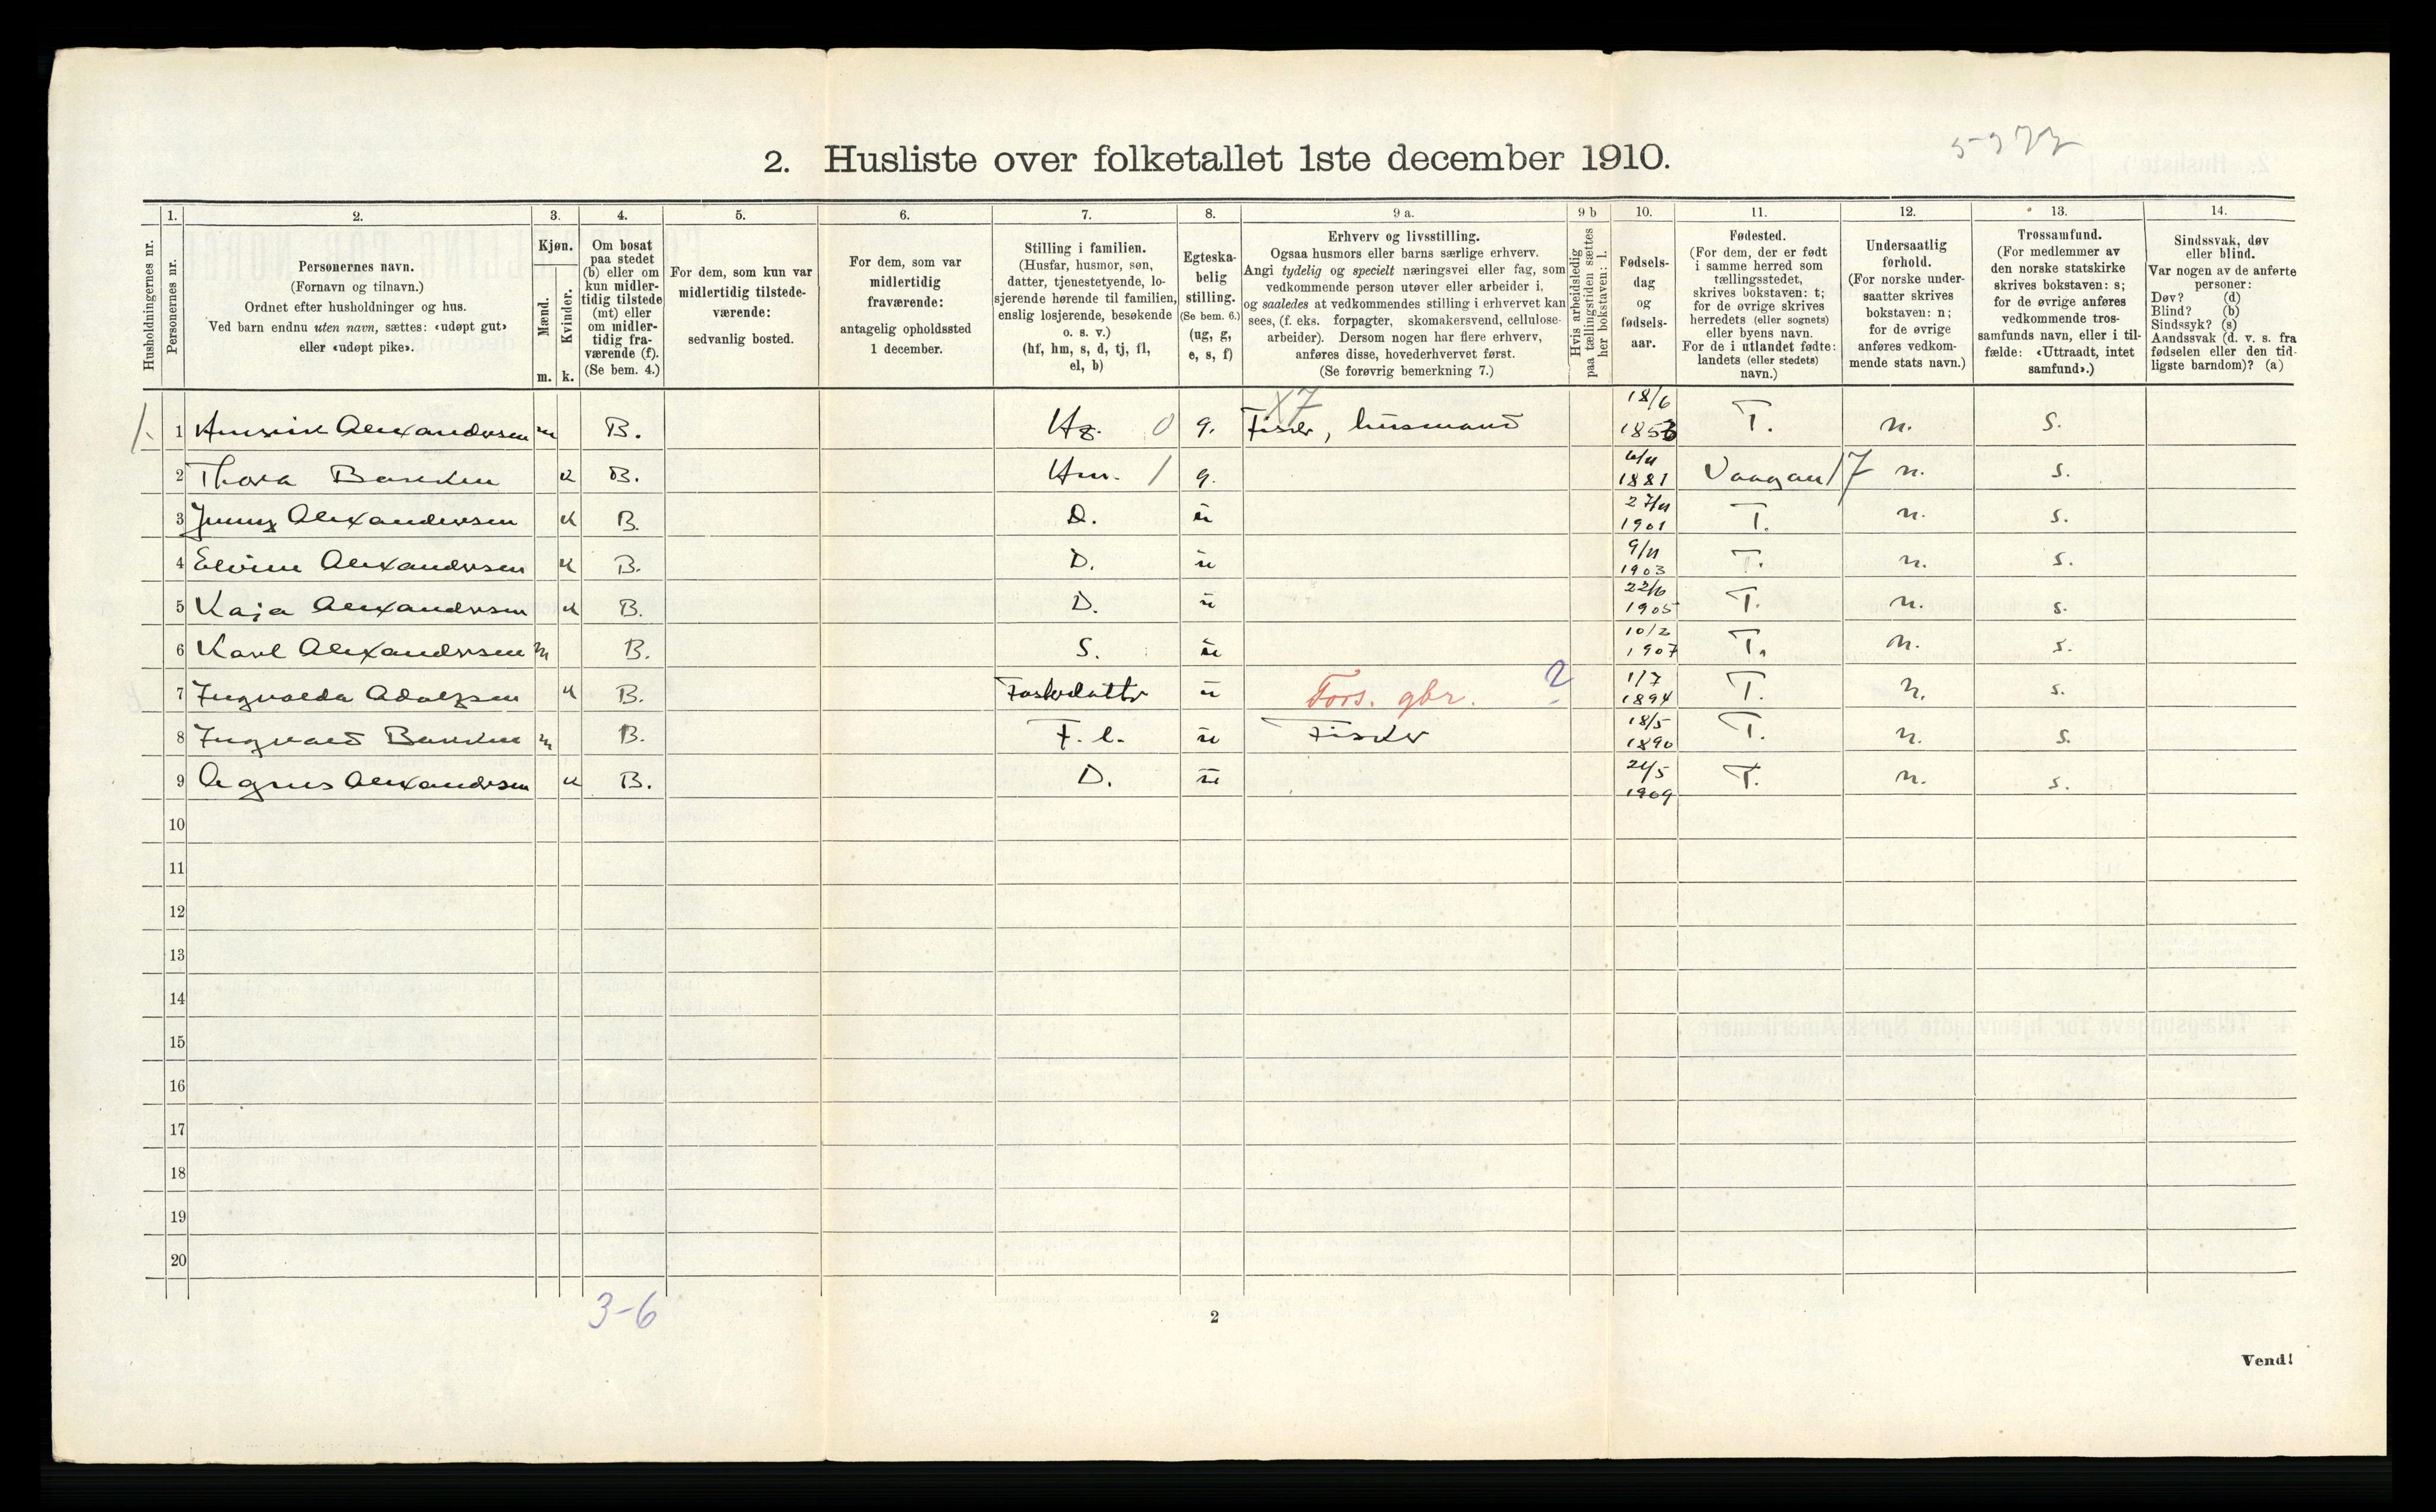 5977
2. Husliste over folketallet 1ste december 1910.
Husholdningernes nr.
1.
Personernes nr.
2.
Personernes navn.
(Fornavn og tilnavn.)
Ordnet efter husholdninger og hus.
Ved barn endnu uten navn, sættes: «udøpt gut»
eller «udøpt pike».
3.
Kjøn.
Mænd.
Kvinder.
m. k.
4.
Om bosat
paa stedet
(b) eller om
kun midler-
tidig tilstede
(mt) eller
om midler-
tidig fra-
værende (f).
(Se bem. 4.)
5.
For dem, som kun var
midlertidig tilstede-
værende:
sedvanlig bosted.
6.
For dem, som var
midlertidig
fraværende:
antagelig opholdssted
1 december.
7.
Stilling i familien.
(Husfar, husmor, søn,
datter, tjenestetyende, lo-
sjerende hørende til familien,
enslig losjerende, besøkende
o. s. v.)
(hf, hm, s, d, tj, fl,
el, b)
8.
Egteska-
belig
stilling.
(Se bem. 6.)
(ug, g,
e, s, f)
9 a.
Erhverv og livsstilling.
Ogsaa husmors eller barns særlige erhverv.
Angi tydelig og specielt næringsvei eller fag, som
vedkommende person utøver eller arbeider i,
og saaledes at vedkommendes stilling i erhvervet kan
sees, (f. eks. forpagter, skomakersvend, cellulose-
arbeider). Dersom nogen har flere erhverv,
anføres disse, hovederhvervet først.
(Se forøvrig bemerkning 7.)
9 b
Hvis arbeidsledig
paa tællingstiden sættes
her bokstaven: l.
10.
Fødsels-
dag
og
fødsels-
aar.
11.
Fødested.
(For dem, der er født
i samme herred som
tællingsstedet,
skrives bokstaven: t;
for de øvrige skrives
herredets (eller sognets)
eller byens navn.
For de i utlandet fødte:
landets (eller stedets)
navn.)
12.
Undersaatlig
forhold.
(For norske under-
saatter skrives
bokstaven: n;
for de øvrige
anføres vedkom-
mende stats navn.)
13.
Trossamfund.
(For medlemmer av
den norske statskirke
skrives bokstaven: s;
for de øvrige anføres
vedkommende tros-
samfunds navn, eller i til-
fælde: «Uttraadt, intet
samfund».)
14.
Sindssvak, døv
eller blind.
Var nogen av de anførte
personer:
Døv? (d)
Blind? (b)
Sindssyk? (s)
Aandssvak (d. v. s. fra
fødselen eller den tid-
ligste barndom)? (a)
1. 1 Alexandersen m B. Hf. 0 g. X7 Fisker, husmand 18/6 1853 T. n. s.
2 Thora k B. Hm. 1 g. 1881 Vaagan 17 n. s.
3 Jenny Alexandersen k B. D. u 27/11 1901 T. n. s.
4 Elvine Alexandersen k B. D. u 9/11 1903 T. n. s.
5 Kaja Alexandersen k B. D. u 22/6 1905 T. n. s.
6 Karl Alexandersen m B. S. u 10/2 1907 T. n. s.
7 Ingvalda Adolfsen k B. Fosterdatter u Fors. gbr. ? 1/7 1894 T. n. s.
8 Ingvald m B. F. l. u Fisker 18/5 1890 T. n. s.
9 Agnes Alexandersen k B. D. u 21/5 1909 T. n. s.
10
11
12
13
14
15
16
17
18
19
20
3-6
2
Vend!